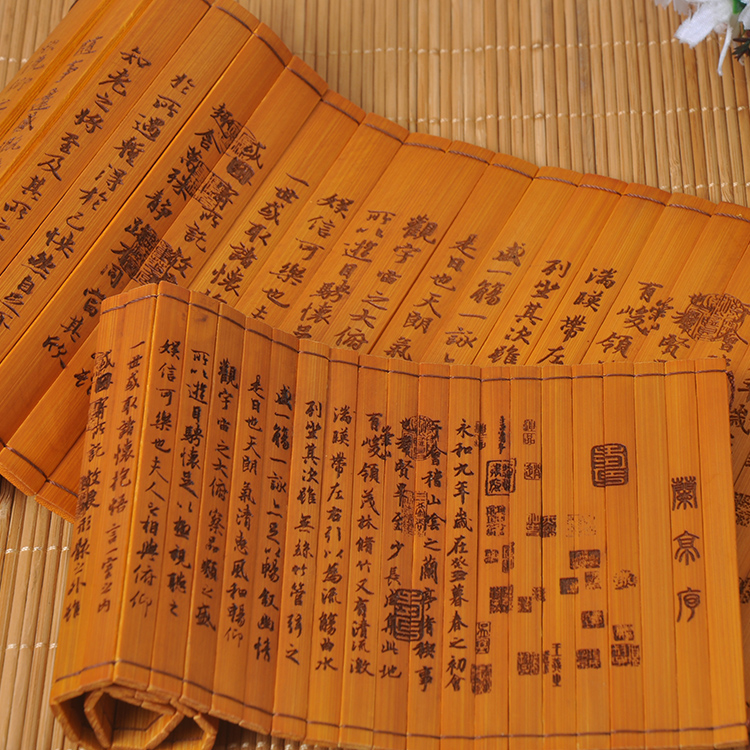 蘭亭序
王羲之
永和九年歲在癸丑暮春之初會
于會稽山陰之蘭亭脩稧事
也群賢畢至少長咸集此地
有崇山峻領茂林脩竹又有清流激
湍暎帶左右引以為流觴曲水
列坐其次雖無絲竹管弦之
盛一觴一詠亦足以暢敘幽情
是日也天朗氣清惠風和暢仰
觀宇宙之大俯察品類之盛
所以遊目騁懷足以極視聽之
娛信可樂也夫人之相與俯仰
一世或取諸懷抱悟言一室之內
或因寄所託放浪形骸之外雖
也群賢
有崇山峻領
湍暎帶左
列坐其次雖
盛一觴一詠
是日也天朗氣
觀宇宙之大俯
所以遊目騁懷
娛信可樂也
一世或取諸懷
或因寄所託放
趣舍萬殊靜躁不同當其欣
於所遇蹔得於己怏然自足不
知老之將至及其所之